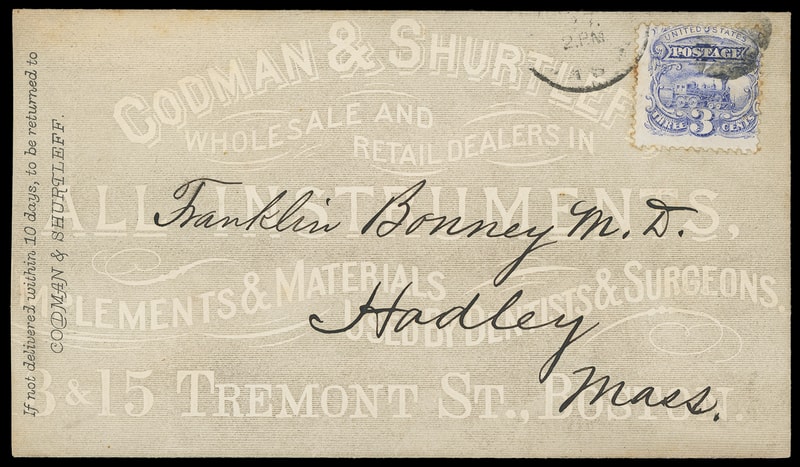 CODMAN & SHURTLEFF
WHOLESALE AND
RETAIL DEALERS IN
ALL INSTRUMENTS,
PLEMENTS & MATERIALS
USED BY DENTISTS & SURGEONS.
3 & 15 TREMONT ST., BOSTON.
If not delivered within 10 days, to be returned to
CODMAN & SHURTLEFF.
2. PM
UNITED STATES
POSTAGE
THREE 3 CENTS
Franklin Bonney M. D.
Hadley
Mass.